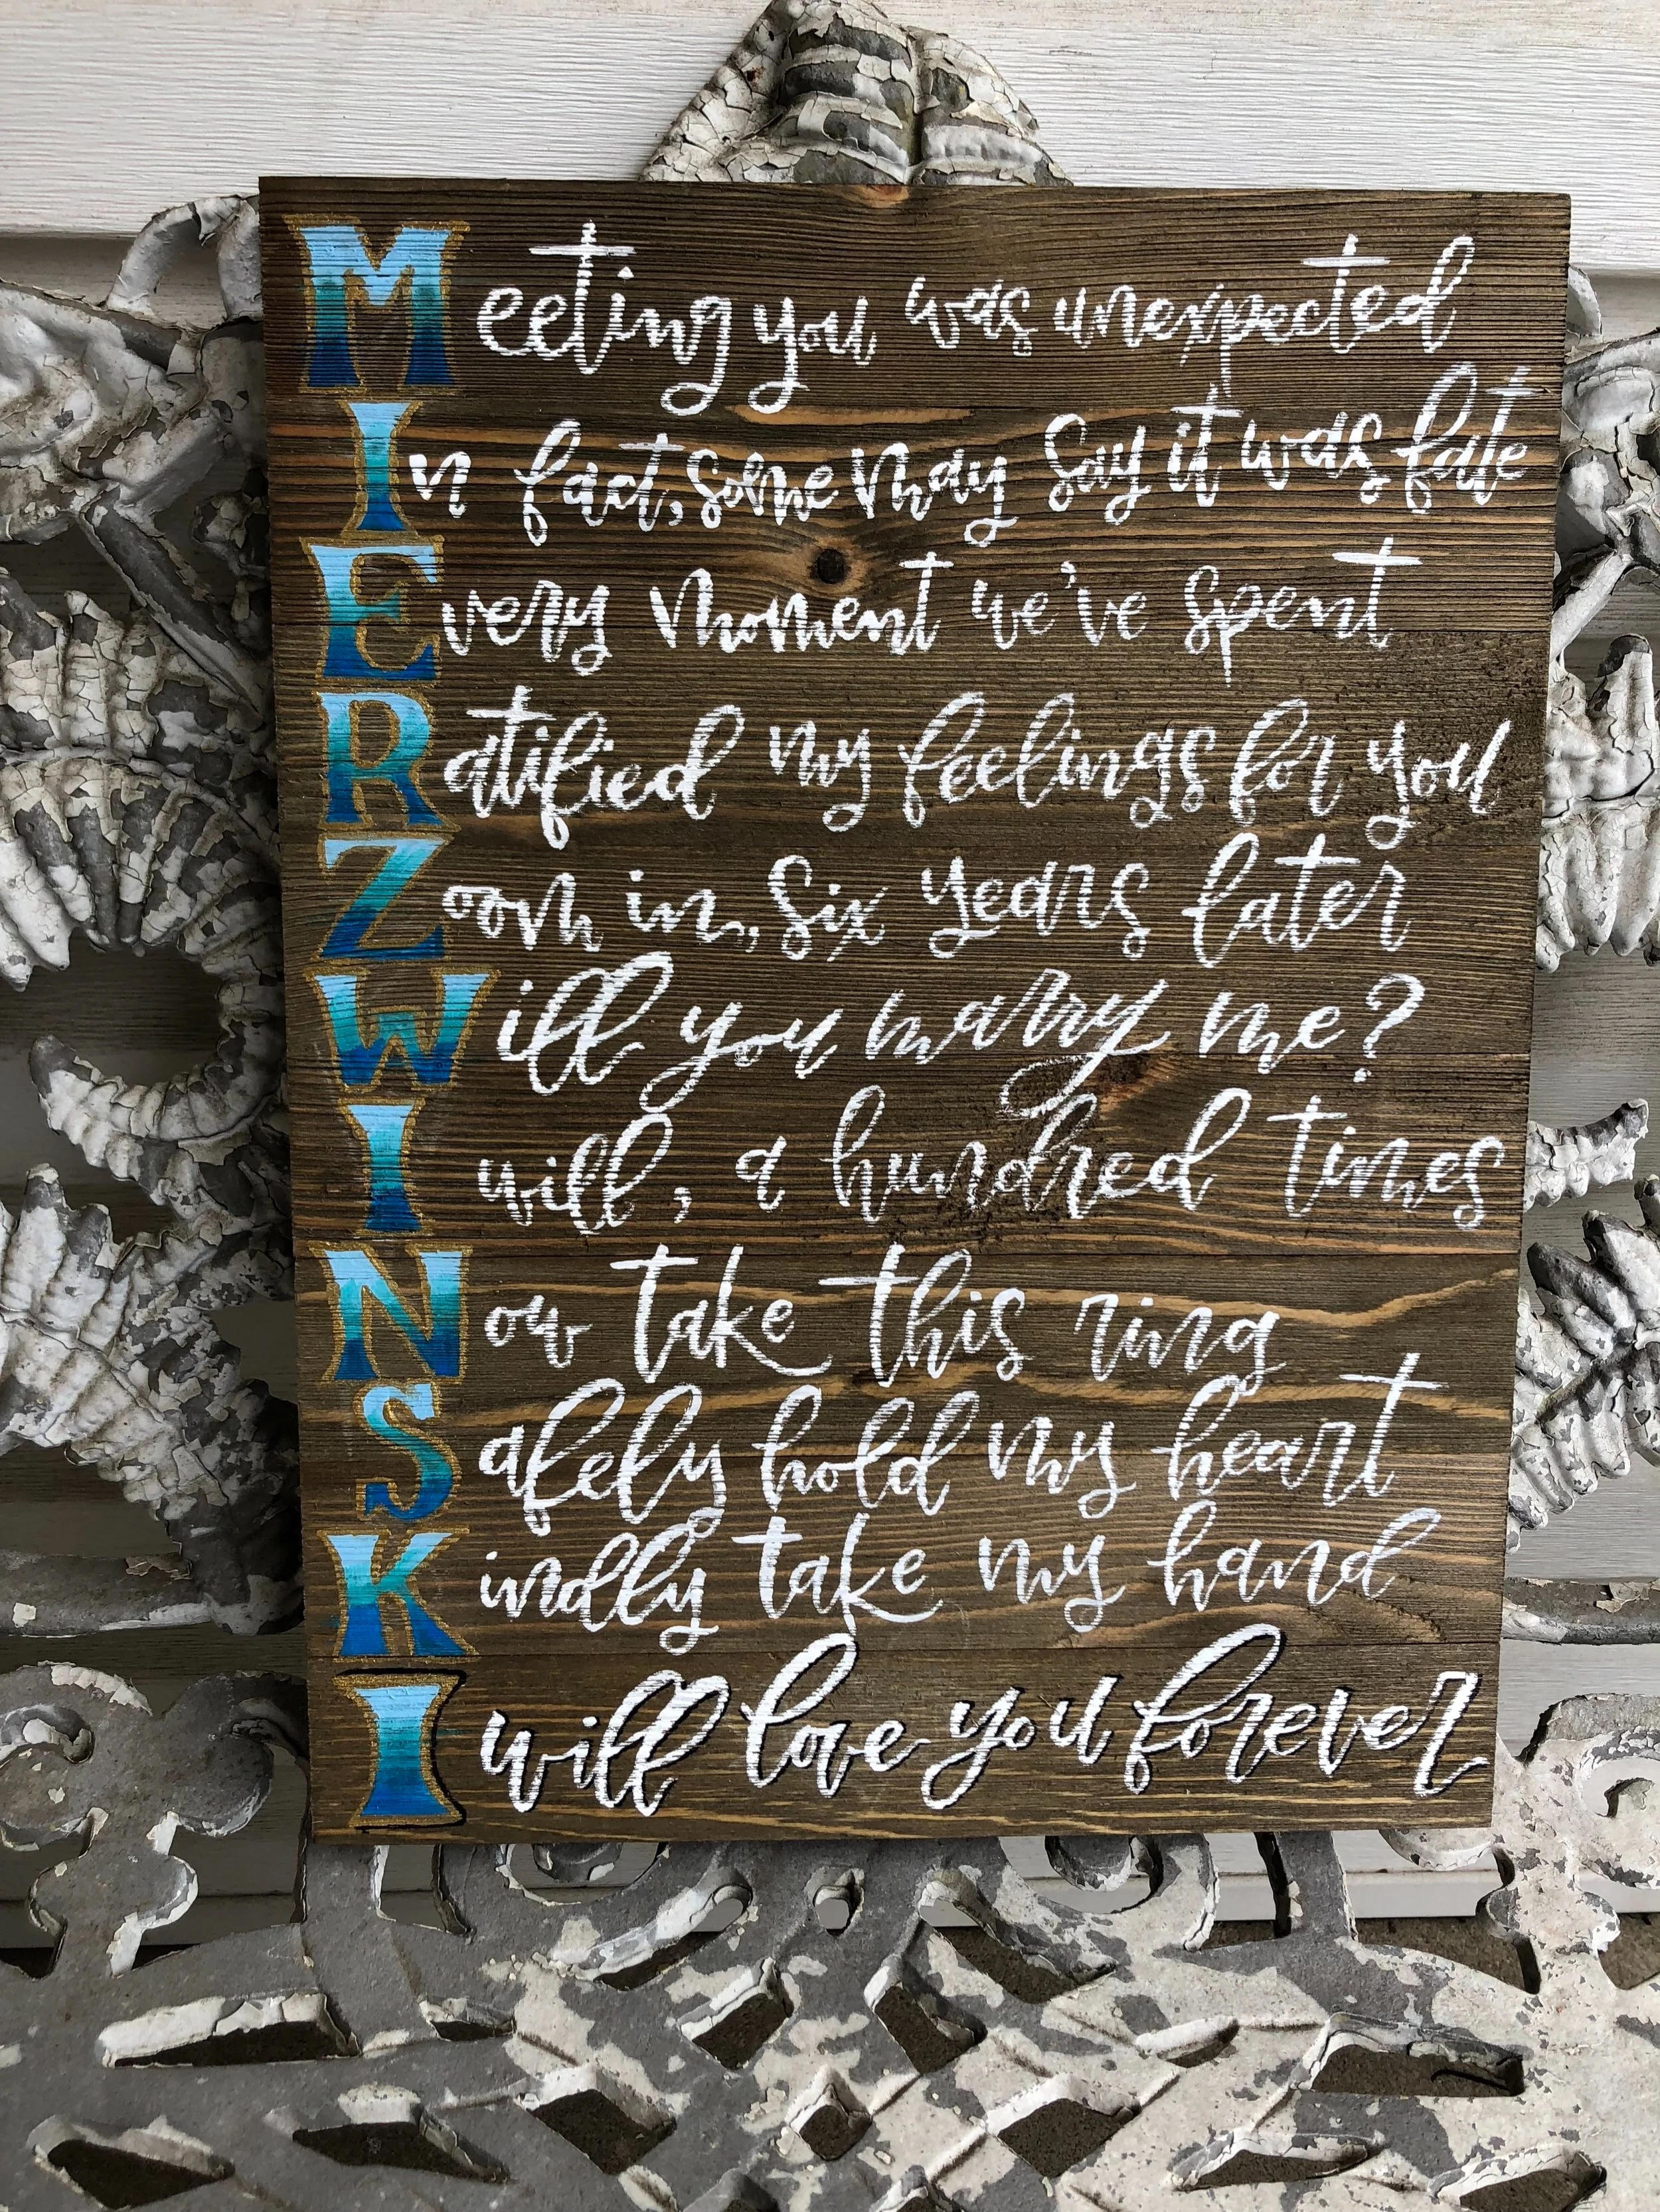 Meeting you was unexpected
In fact, some may say it was fate
Every moment we've spent
Ratified my feelings for you
Zoom in, six years later
Will you marry me?
I will, a hundred times
Now take this ring
Safely hold my heart
Kindly take my hand
I will love you forever